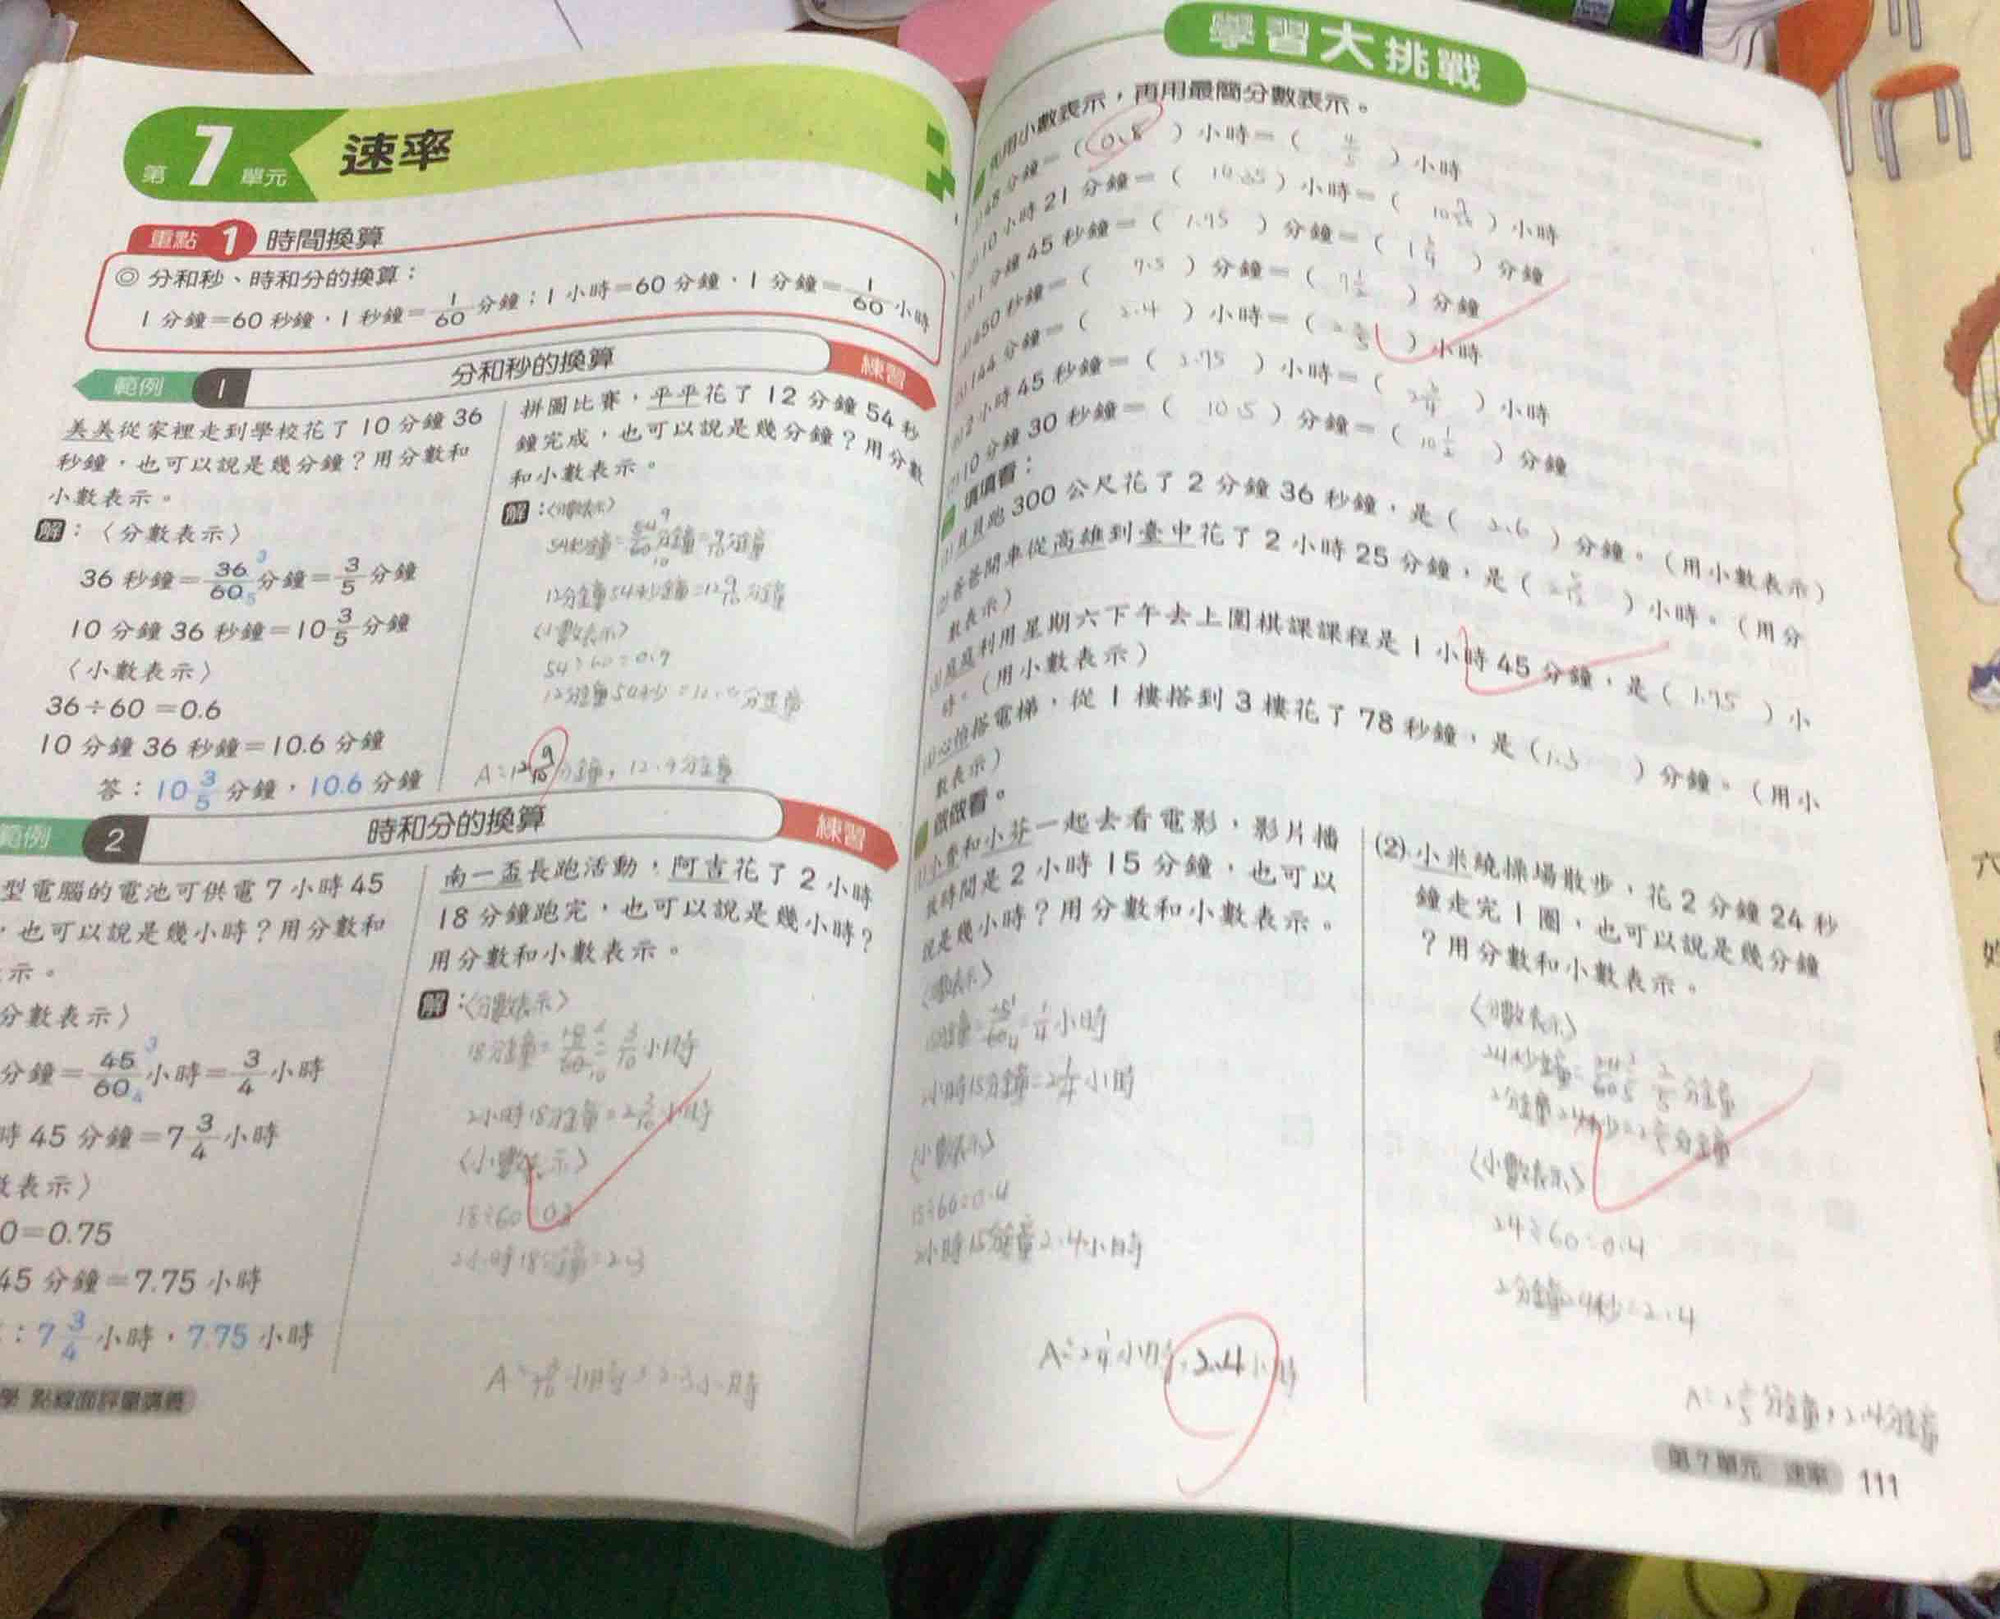 第7單元 速率
重點1 時間換算
◎ 分和秒、時和分的換算：
1分鐘=60秒鐘，1秒鐘=1/60分鐘；1小時=60分鐘，1分鐘=1/60小時
範例 1 分和秒的換算 練習
美美從家裡走到學校花了10分鐘36
秒鐘，也可以說是幾分鐘？用分數和
小數表示。
解：〈分數表示〉
36秒鐘=36/60分鐘=3/5分鐘
10分鐘36秒鐘=10 3/5分鐘
〈小數表示〉
36÷60=0.6
10分鐘36秒鐘=10.6分鐘
答：10 3/5分鐘，10.6分鐘
拼圖比賽，平平花了12分鐘54秒
鐘完成，也可以說是幾分鐘？用分數
和小數表示。
解：〈分數表示〉
54秒鐘=54/60分鐘=9/10分鐘
12分鐘54秒鐘=12 9/10分鐘
〈小數表示〉
54÷60=0.9
12分鐘54秒=12.9分鐘
A=12 9/10分鐘，12.9分鐘
範例 2 時和分的換算 練習
型電腦的電池可供電7小時45
，也可以說是幾小時？用分數和
示。
分數表示〉
分鐘=45/60小時=3/4小時
時45分鐘=7 3/4小時
表示〉
0=0.75
45分鐘=7.75小時
：7 3/4小時，7.75小時
南一盃長跑活動，阿吉花了2小時
18分鐘跑完，也可以說是幾小時？
用分數和小數表示。
解：〈分數表示〉
18分鐘=18/60=3/10小時
2小時18分鐘=2 3/10小時
〈小數表示〉
18÷60=0.3
2小時18分鐘=2.3
A=2 3/10小時，2.3小時
學 點線面評量講義
學習大挑戰
用小數表示，再用最簡分數表示。
48分鐘=（0.8）小時=（4/5）小時
10小時21分鐘=（10.35）小時=（10 7/20）小時
1分鐘45秒鐘=（1.75）分鐘=（1 3/4）分鐘
450秒鐘=（7.5）分鐘=（7 1/2）分鐘
144分鐘=（2.4）小時=（2 2/5）小時
2小時45秒鐘=（2.75）小時=（2 3/4）小時
10分鐘30秒鐘=（10.5）分鐘=（10 1/2）分鐘
填填看：
跑300公尺花了2分鐘36秒鐘，是（2.6）分鐘。（用小數表示）
爸爸開車從高雄到臺中花了2小時25分鐘，是（2 5/12）小時。（用分
數表示）
庭庭利用星期六下午去上圍棋課課程是1小時45分鐘，是（1.75）小
時。（用小數表示）
心怡搭電梯，從1樓搭到3樓花了78秒鐘，是（1.3）分鐘。（用小
數表示）
做做看。
和小芬一起去看電影，影片播
放時間是2小時15分鐘，也可以
說是幾小時？用分數和小數表示。
〈分數表示〉
15分鐘=15/60=1/4小時
2小時15分鐘=2 1/4小時
〈小數表示〉
15÷60=0.4
2小時15分鐘=2.4小時
A=2 1/4小時，2.4小時
(2) 小米繞操場散步，花2分鐘24秒
鐘走完1圈，也可以說是幾分鐘
？用分數和小數表示。
〈分數表示〉
24秒鐘=24/60=2/5分鐘
2分鐘24秒=2 2/5分鐘
〈小數表示〉
24÷60=0.4
2分鐘24秒=2.4
A=2 2/5分鐘，2.4分鐘
第7單元 速率 111